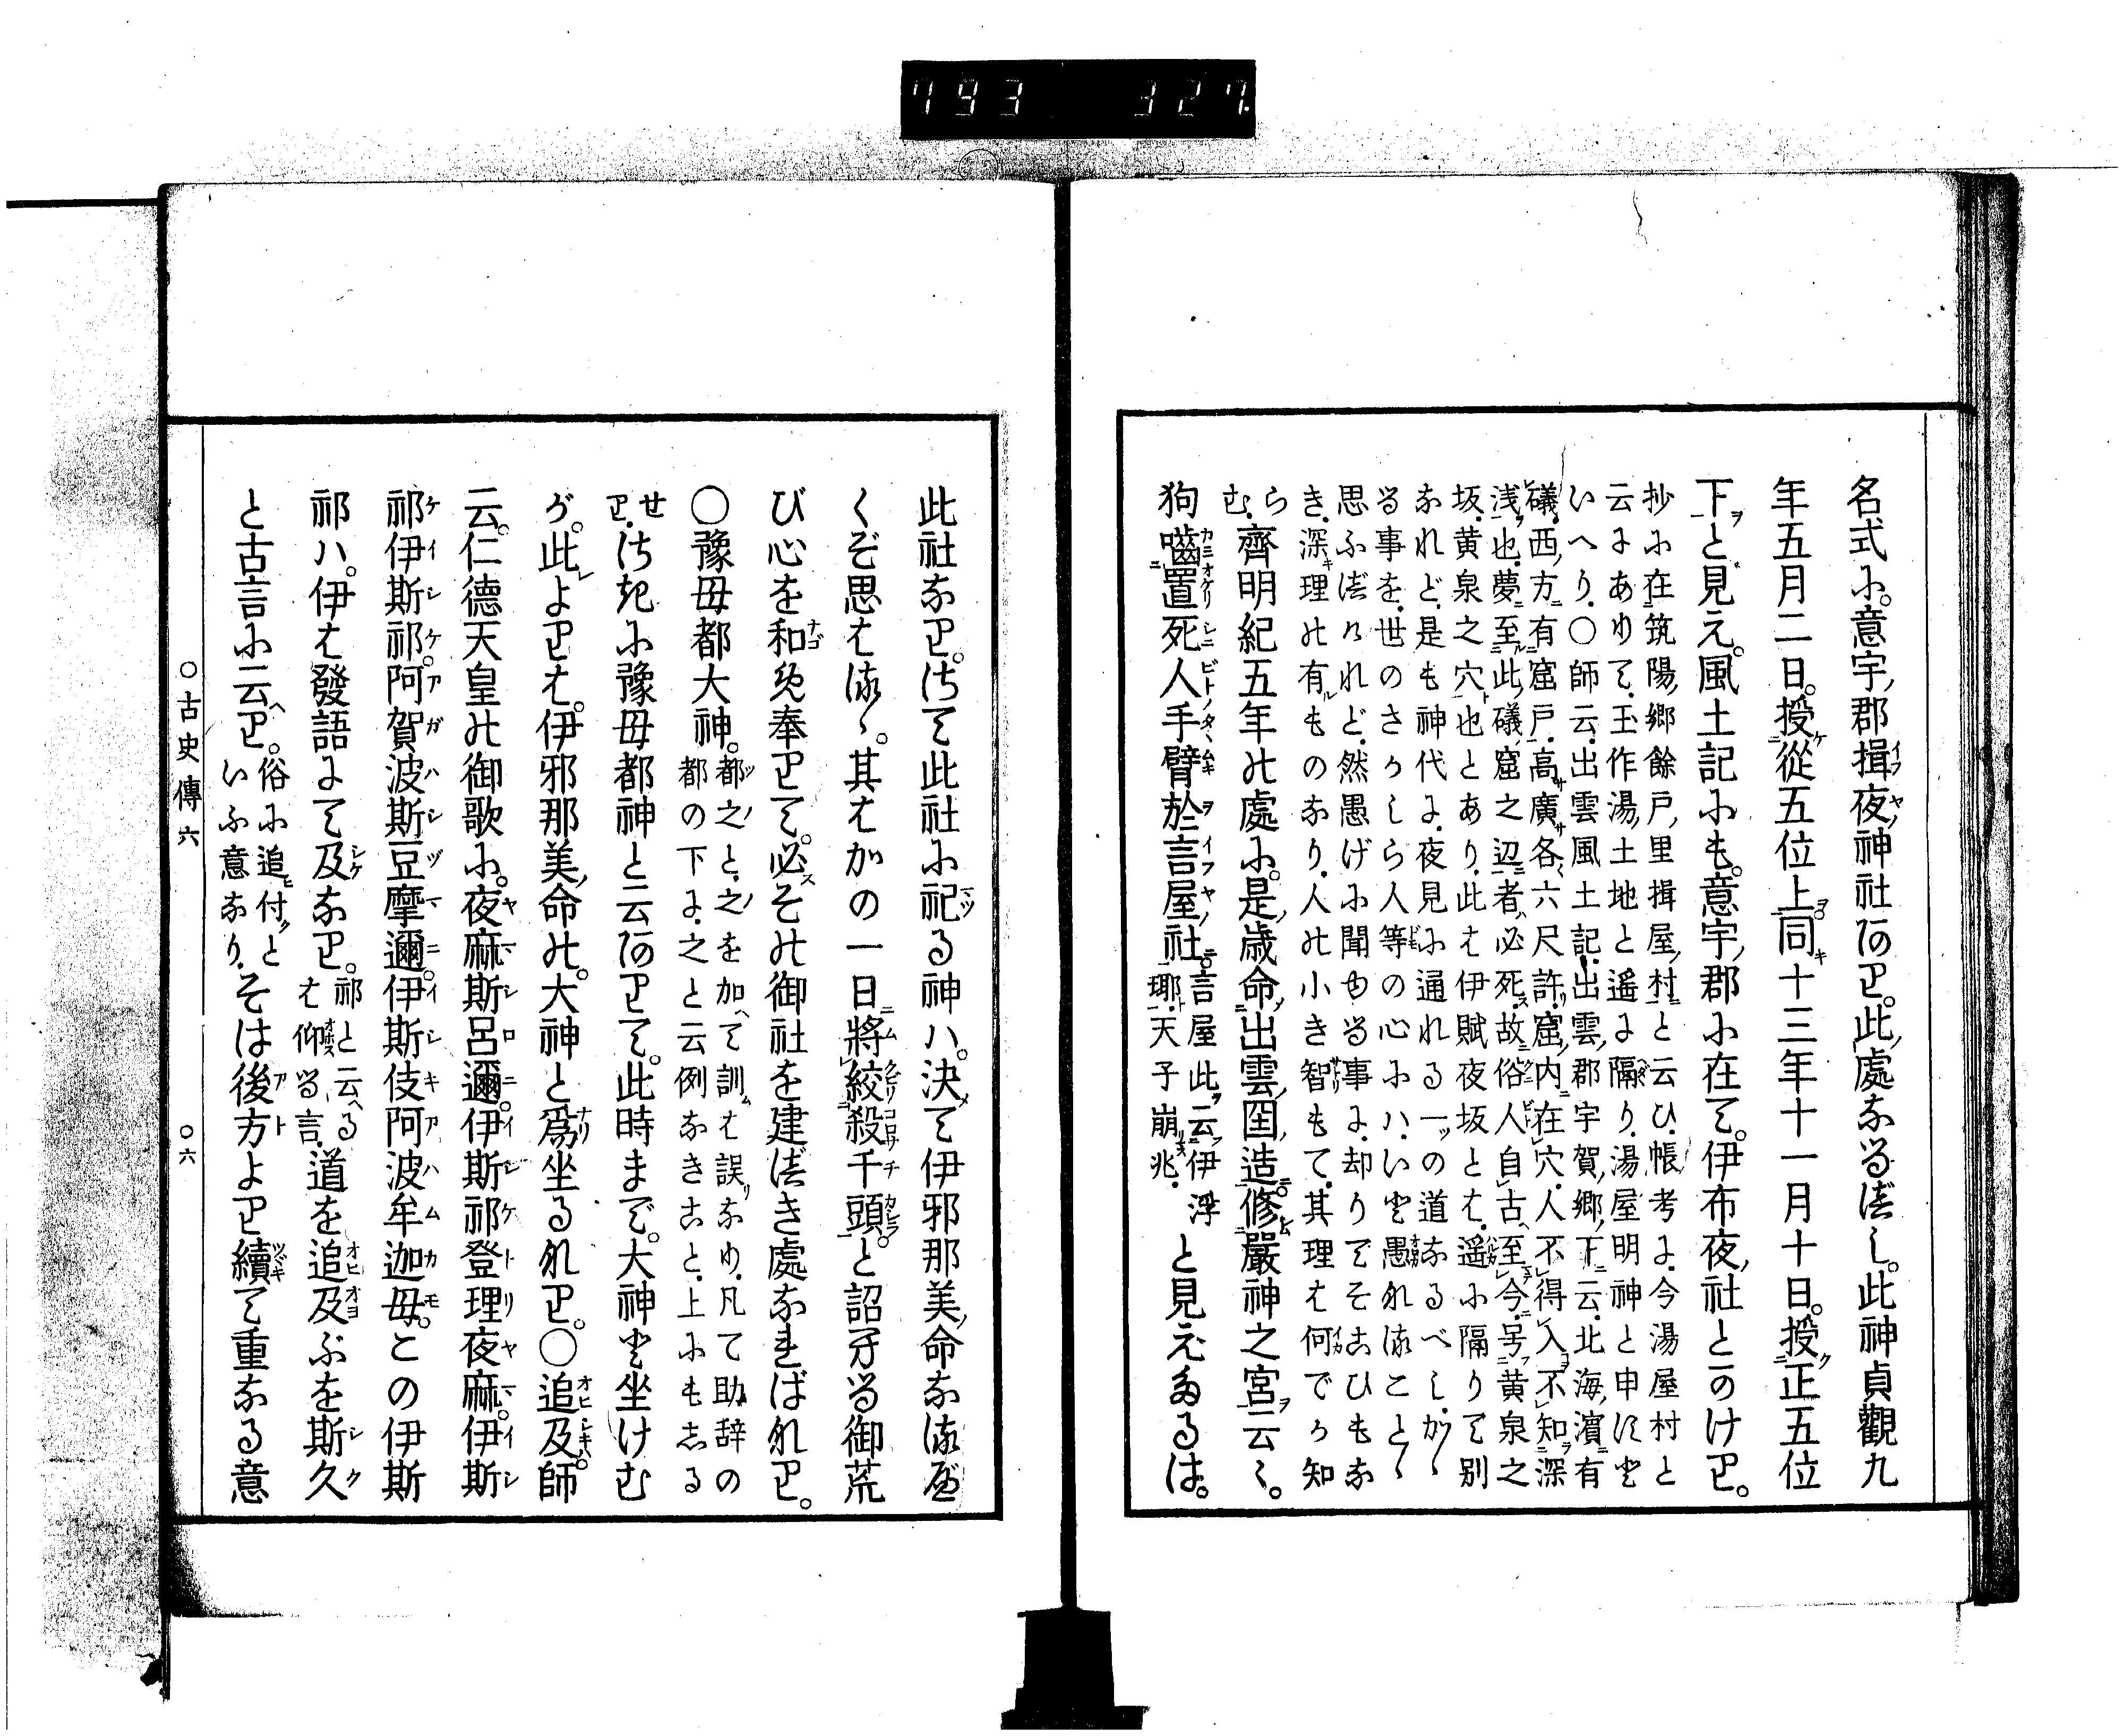 793 327
名式に。意宇郡揖夜神社あり。此處なるべし。此神貞觀九
年五月二日。授從五位上同十三年十一月十日。授正五位
下と見え。風土記にも。意宇郡に在て。伊布夜社とのけり。
抄に在筑陽郷餘戸里揖屋村と云ひ。帳考に今湯屋村と
云にありて。玉作湯土地と遥に隔り。湯屋明神と申にぞ
いへり。〇師云。出雲風土記。出雲郡宇賀郷下云。北海濱有
礒。西方有窟戸。高廣各六尺許。窟内在穴。人不得入不知深
浅也。夢至此礒窟之辺者必死。故俗人自古至今号黄泉之
坂。黄泉之穴也とあり。此は伊賦夜坂とは。遥に隔りて別
なれど。是も神代に。夜見に通れる一の道なるべし。かゝ
る事を。世のさかしら人等の心にハ。いと愚れたることゝ
思ふべけれど。然愚げに聞ゆる事に。却りてそこひもな
き。深理の有ものなり。人の小き智もて。其理は何でか知
らむ。
齊明紀五年の處に。是歳命出雲國造。修嚴神之宮云々。
狗嚙置死人手臂於言屋社。言屋此云伊浮
瑘。天子崩兆。と見えたるは。
此社なり。さて此社に祀る神ハ。決て伊邪那美命なるべ
くぞ思はるゝ。其はかの一日將絞殺千頭と詔ける御荒
び心を和め奉りて。必その御社を建べき處なればなり。
〇豫母都大神。都之と之を加て訓は誤なり。凡て助辞の
都の下に之と云例なきこと。上にもしる
せり。
さきに豫母都神と云ありて。此時まで。大神と坐けむ
が。此よりは。伊邪那美命の。大神と爲坐るなり。〇追及師
云。仁德天皇の御歌に。夜麻斯呂邇。伊斯祁登理夜麻。伊斯
祁伊斯祁。阿賀波斯豆摩邇。伊斯伎阿波牟迦母。この伊斯
祁ハ。伊は發語にて及なり。祁と云るは
仰する言。道を追及ぶを斯久
と古言に云り。俗に追付と
いふ意なり。そは後方より續て重なる意
〇古史傳六 〇六